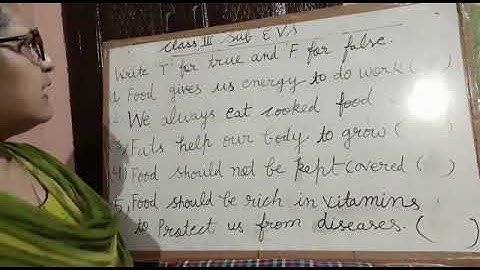 Class III Sub E.V.S
Write 'T' for true and F for false.
1. Food gives us energy to do work ( )
2. We always eat cooked food
3. Fats help our body to grow ( )
4. Food should not be kept covered ( )
5. Food should be rich in vitamins
to Protect us from diseases. ( )